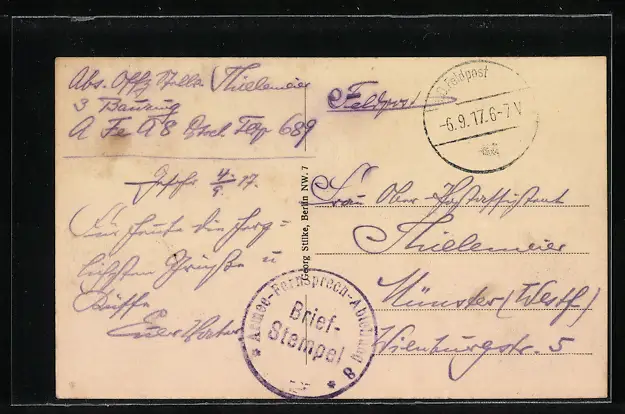 Abs. Offz Stellv. Thielemeier
3 Bauzug
A Fe A 8 Dtsch. Felp 689
4/9 17.
Für heute die herz-
lichsten Grüße u
Küsse
Euer Vater
Georg Stilke, Berlin NW. 7
Feldpost
K.D. Feldpost
-6.9.17.6-7V
Frau Ober-Postassistent
Thielemeier
Münster (Westf)
Wienburgstr. 5
Armee-Fernsprech-Abteilung 8
Brief-
Stempel